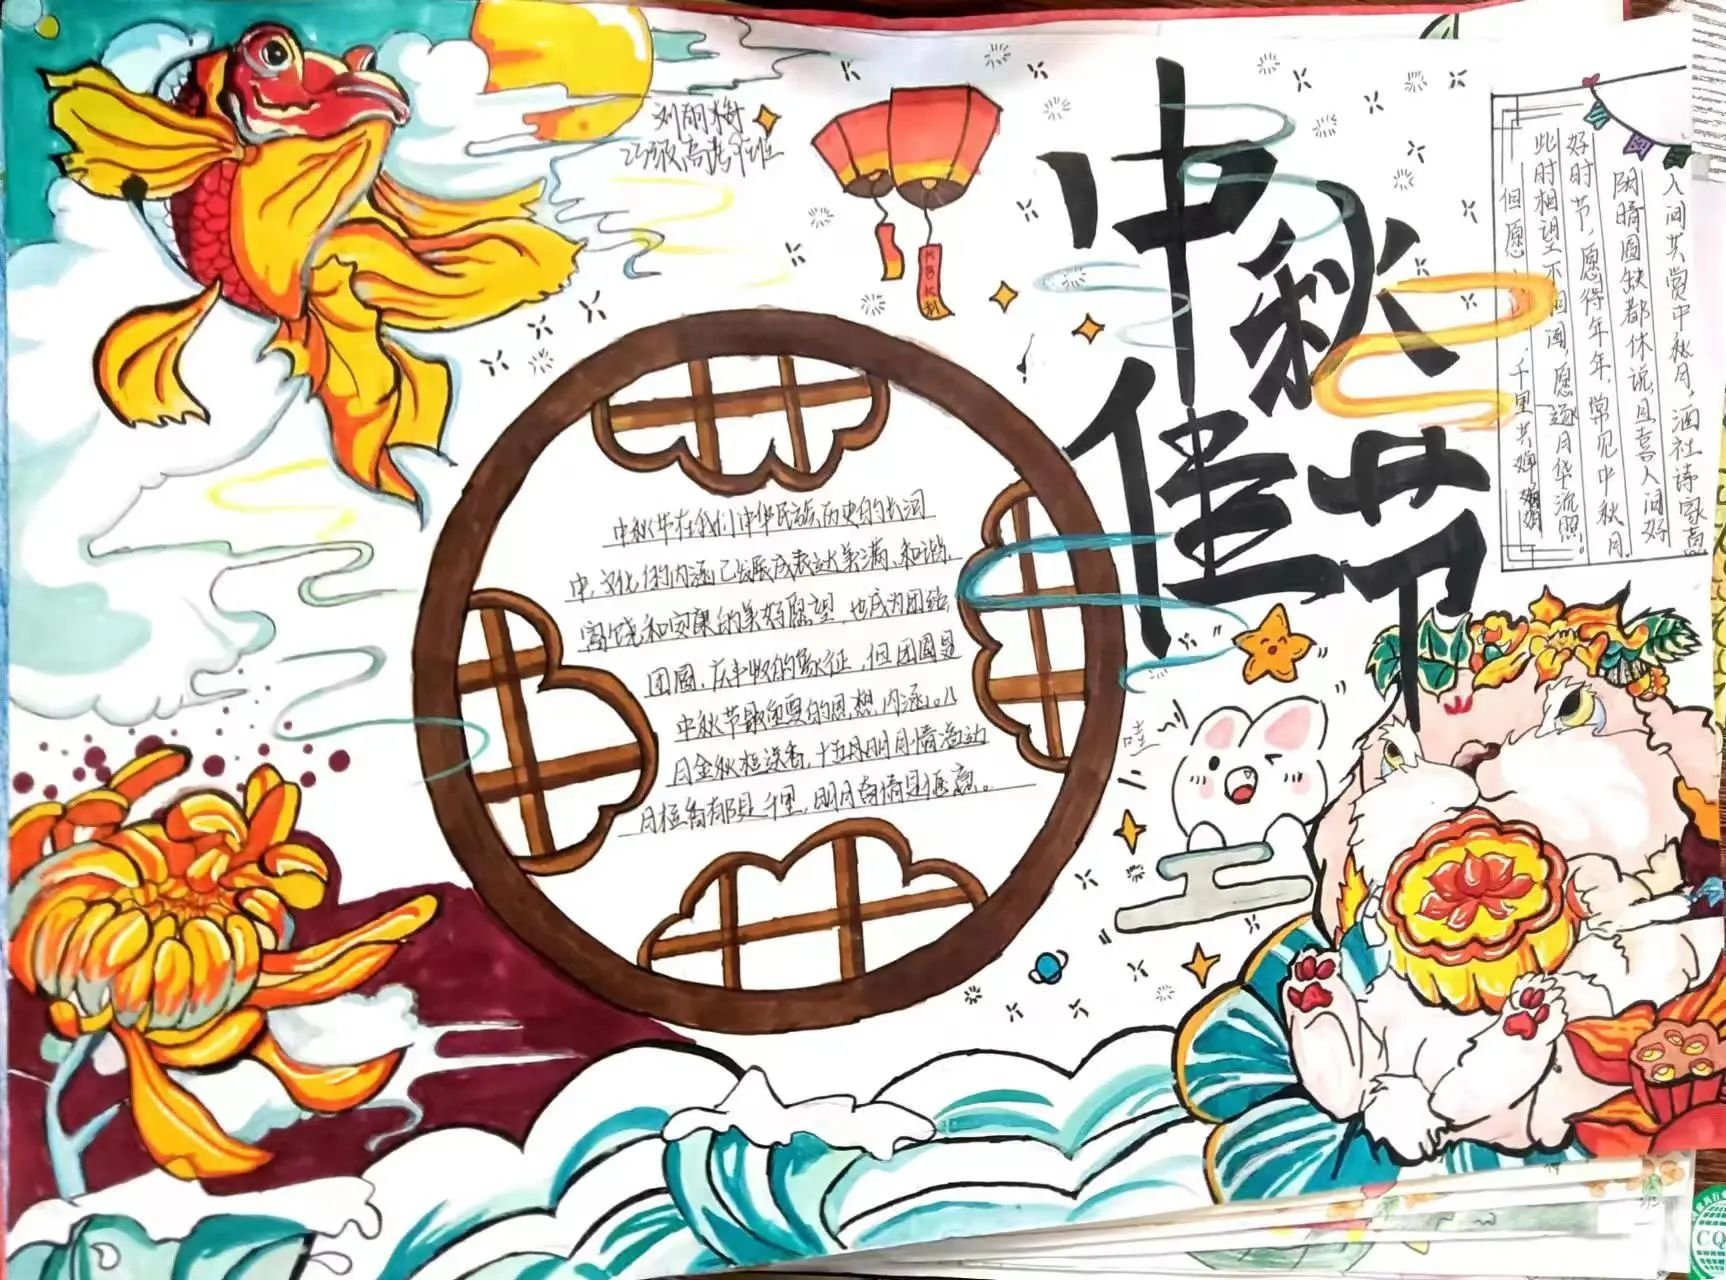 中秋佳节
刘朋樹
23级高考1班
人间共赏中秋月，酒社诗家高
阴晴圆缺都休说，且喜人间好
好时节，愿得年年，常见中秋月
此时相望不相闻，愿逐月华流照。
但愿 千里共婵娟
哇
中秋节在我们中华民族历史的长河
中，文化的内涵已发展成表达美满、和谐
富饶和安康的美好愿望，也成为团结
团圆、庆丰收的象征，但团圆是
中秋节最重要的思想内涵。八
月金秋桂送香，十五月明月情者动
月桂香有都是千里，明月有情是
CQ